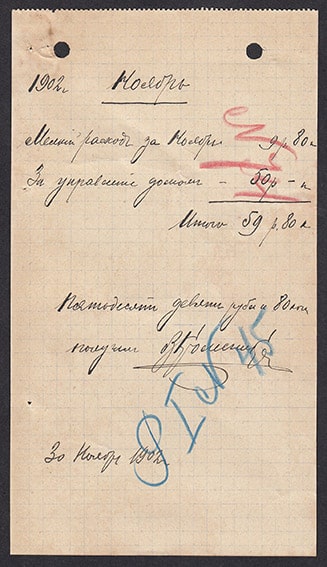 1902 г. Ноябрь
Мелкiй расходъ за Ноябрь 9 р. 80 к
За управленiе домомъ – 50 р – к
Итого 59 р. 80 к
Пятьдесятъ девять руб и 80 коп
получилъ
30 Ноября 1902 г.
№ 45